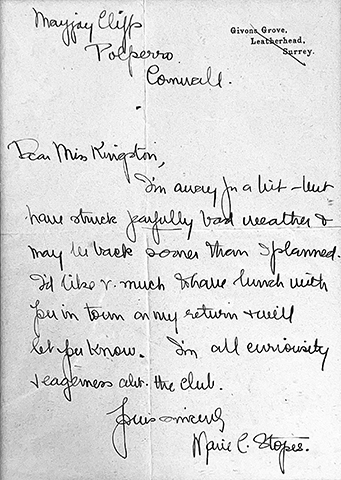 Mayjay Cliffs
Polperro.
Cornwall.
Givons Grove,
Leatherhead,
Surrey.
Dear Miss Kingston,
I'm away for a bit – but
have struck fearfully bad weather &
may be back sooner than I planned.
I'd like v. much to have lunch with
you in town on my return & will
let you know. I'm all curiousity
& eagerness abt. the club.
Yours sincerely
Marie C. Stopes.